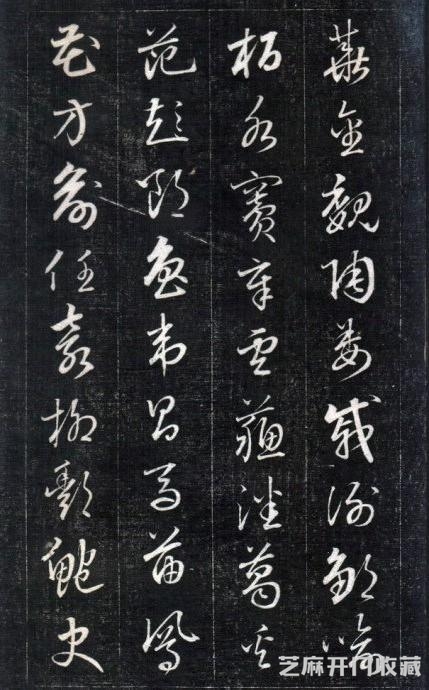 華金魏陶姜戚謝鄒喻
柏水竇章雲蘇潘葛奚
范彭郎魯韋昌馬苗鳳
花方俞任袁柳酆鮑史
芝麻开门收藏